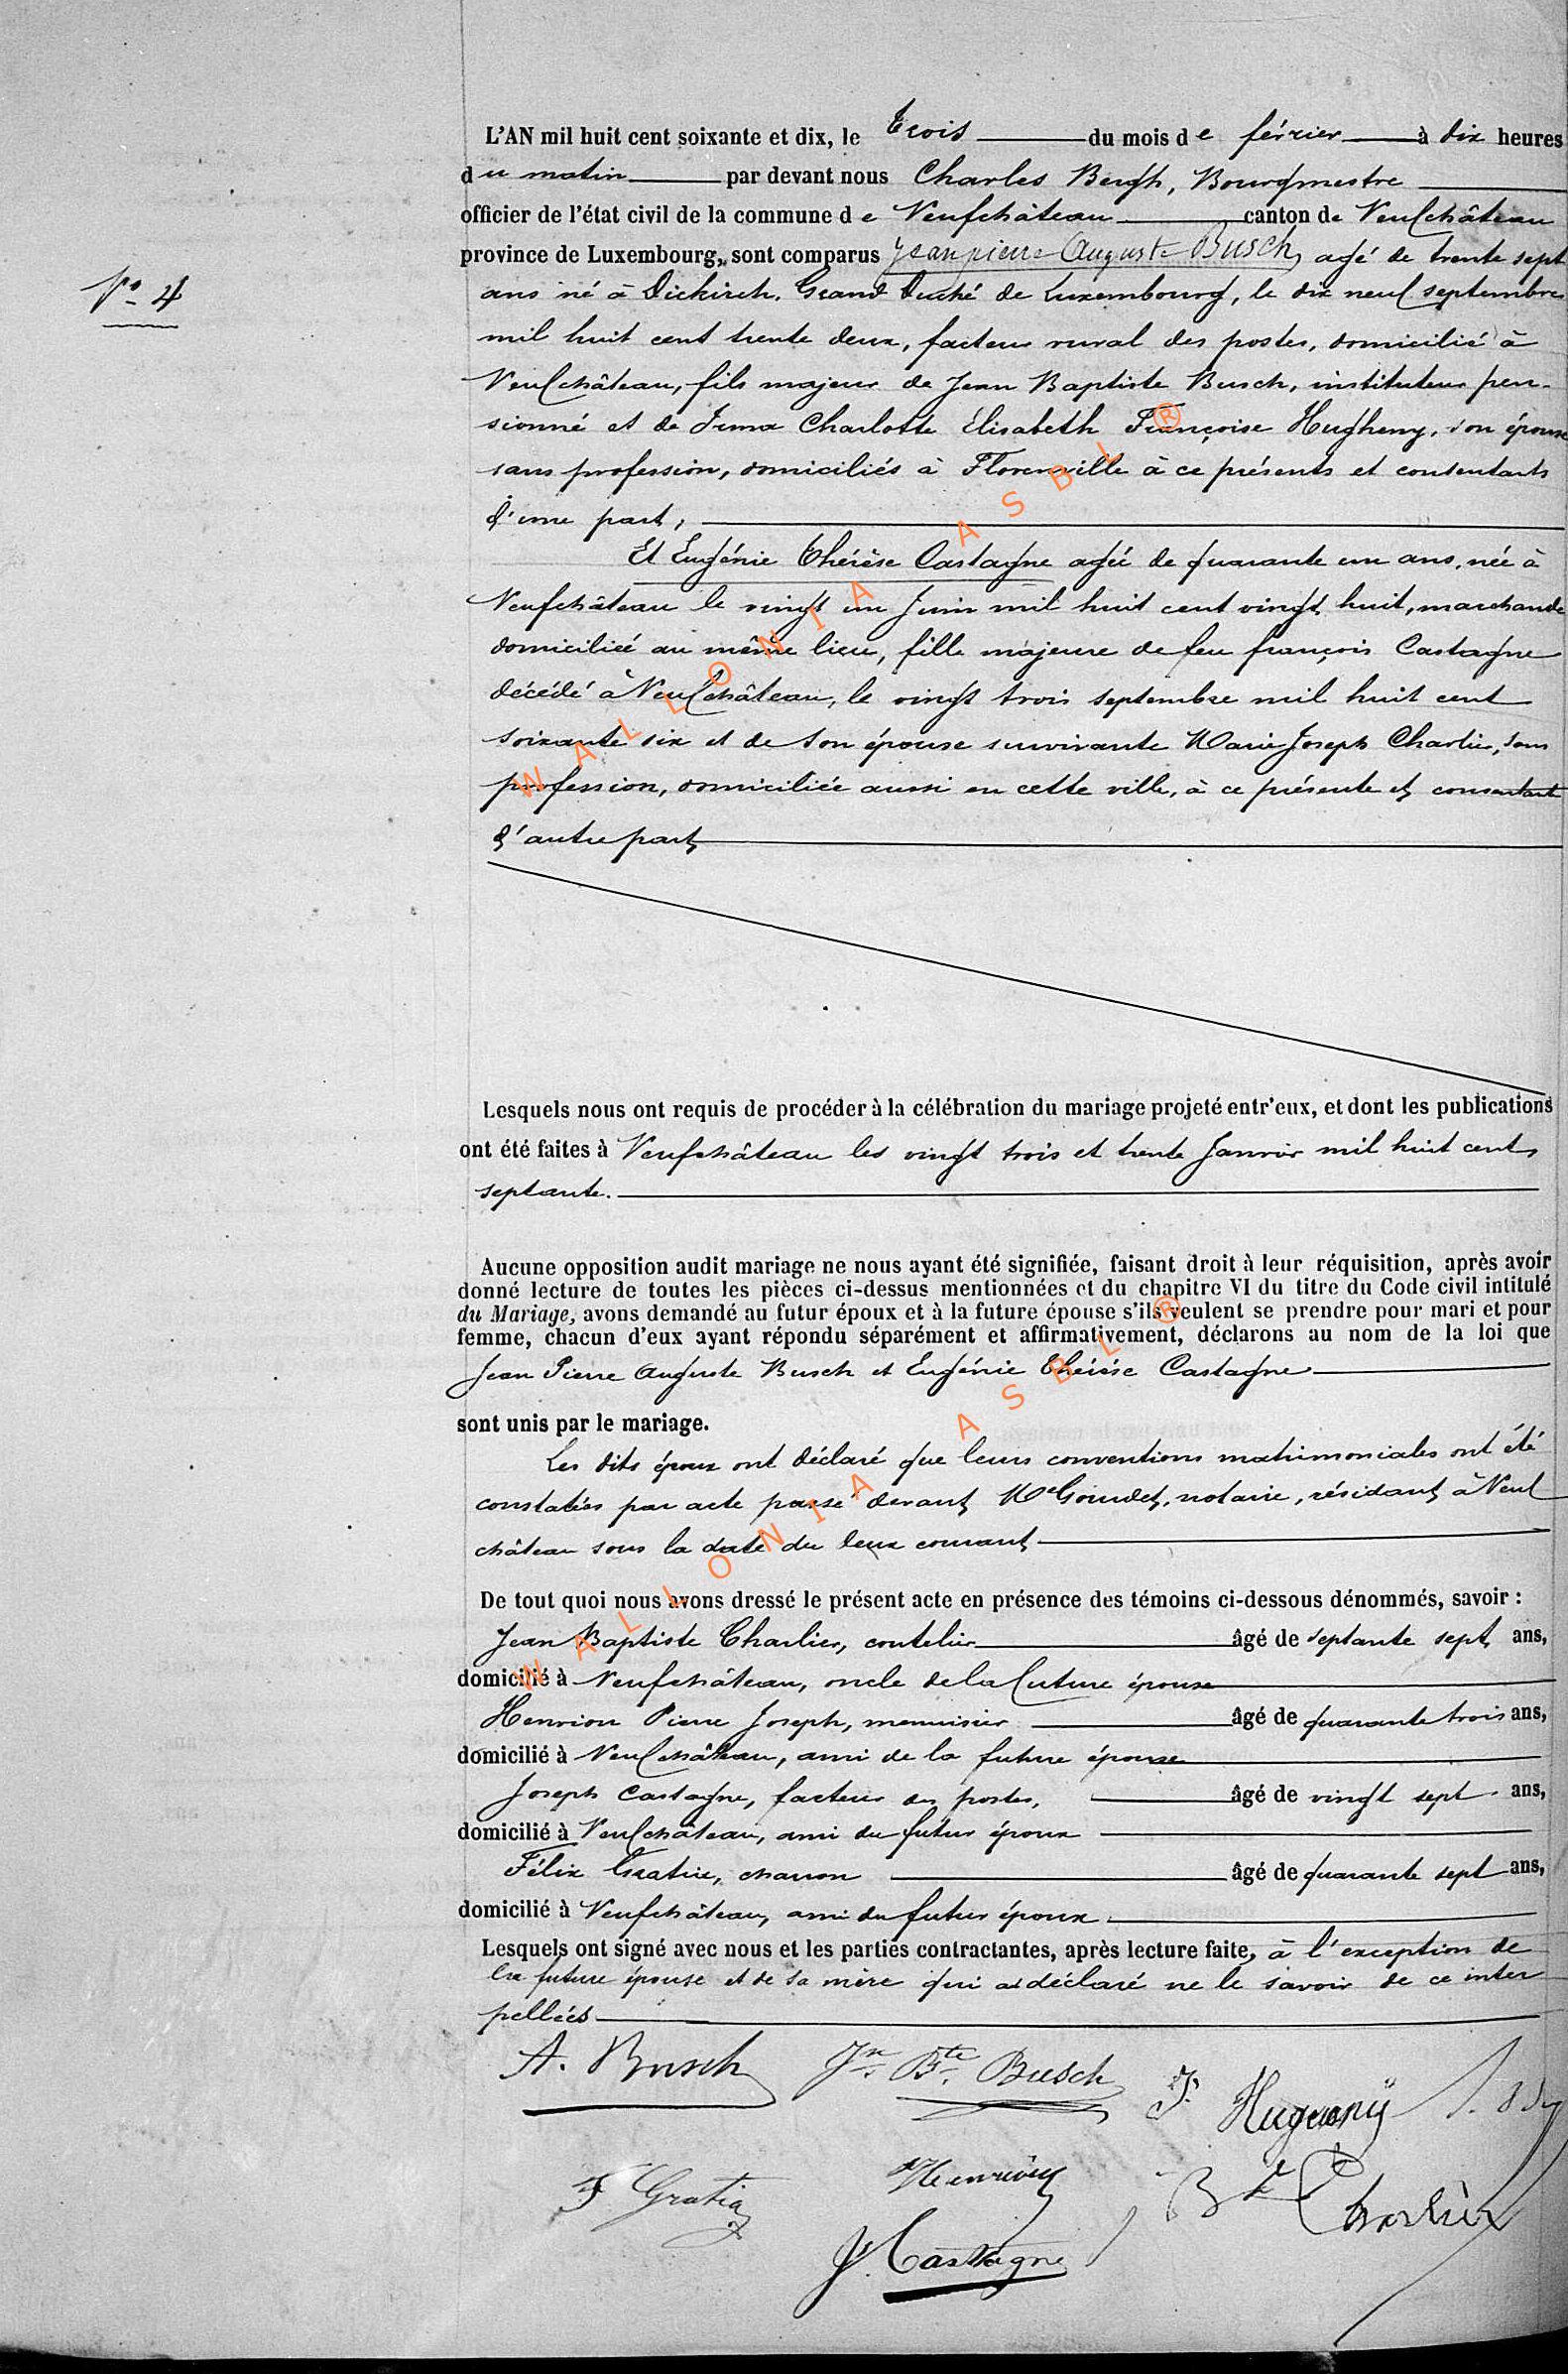 L'AN mil huit cent soixante et dix, le trois du mois de février à dix heures
du matin par devant nous Charles Bergh, Bourgmestre
officier de l'état civil de la commune de Neufchâteau canton de Neufchâteau
province de Luxembourg, sont comparus Jean pierre Auguste Busch, agé de trente sept
N° 4
ans né à Diekirch, Grand Duché de Luxembourg, le dix neuf septembre
mil huit cent trente deux, facteur rural des postes, domicilié à
Neufchâteau, fils majeur de Jean Baptiste Busch, instituteur pen-
sionné et de Irma Charlotte Élisabeth Françoise Hugheny, son épouse
sans profession, domiciliés à Florenville à ce présents et consentants
d'une part,
Et Eugénie Thérèse Castagne agée de quarante un ans, née à
Neufchâteau le vingt un Juin mil huit cent vingt huit, marchande
domiciliée au même lieu, fille majeure de feu françois Castagne
décédé à Neufchâteau, le vingt trois septembre mil huit cent
soixante six et de son épouse survivante Marie Joseph Charlier, sans
profession, domiciliée aussi en cette ville, à ce présente et consentant
d'autre part
Lesquels nous ont requis de procéder à la célébration du mariage projeté entr'eux, et dont les publications
ont été faites à Neufchâteau les vingt trois et trente Janvier mil huit cent
septante.
Aucune opposition audit mariage ne nous ayant été signifiée, faisant droit à leur réquisition, après avoir
donné lecture de toutes les pièces ci-dessus mentionnées et du chapitre VI du titre du Code civil intitulé
du Mariage, avons demandé au futur époux et à la future épouse s'ils veulent se prendre pour mari et pour
femme, chacun d'eux ayant répondu séparément et affirmativement, déclarons au nom de la loi que
Jean Pierre Auguste Busch et Eugénie Thérèse Castagne
sont unis par le mariage.
Les dits époux ont déclaré que leurs conventions matrimoniales ont été
constatées par acte passé devant Me Gourdet, notaire, résidant à Neuf
château sous la date du deux courant
De tout quoi nous avons dressé le présent acte en présence des témoins ci-dessous dénommés, savoir :
Jean Baptiste Charlier, coutelier âgé de septante sept ans,
domicilié à Neufchâteau, oncle de la future épouse
Henrion Pierre Joseph, menuisier âgé de quarante trois ans,
domicilié à Neufchâteau, ami de la future épouse
Joseph Castagne, facteur des postes, âgé de vingt sept ans,
domicilié à Neufchâteau, ami du futur époux
Félix Gratia, charron âgé de quarante sept ans,
domicilié à Neufchâteau, ami du futur époux
Lesquels ont signé avec nous et les parties contractantes, après lecture faite, à l'exception de
la future épouse et de sa mère qui a déclaré ne le savoir de ce inter
pellées
A. Busch Jn. Bte. Busch F. Huguenÿ
F Gratia Henrion Bte Charlier
J. Castagne
WALLONIA ASBL ®
WALLONIA ASBL ®